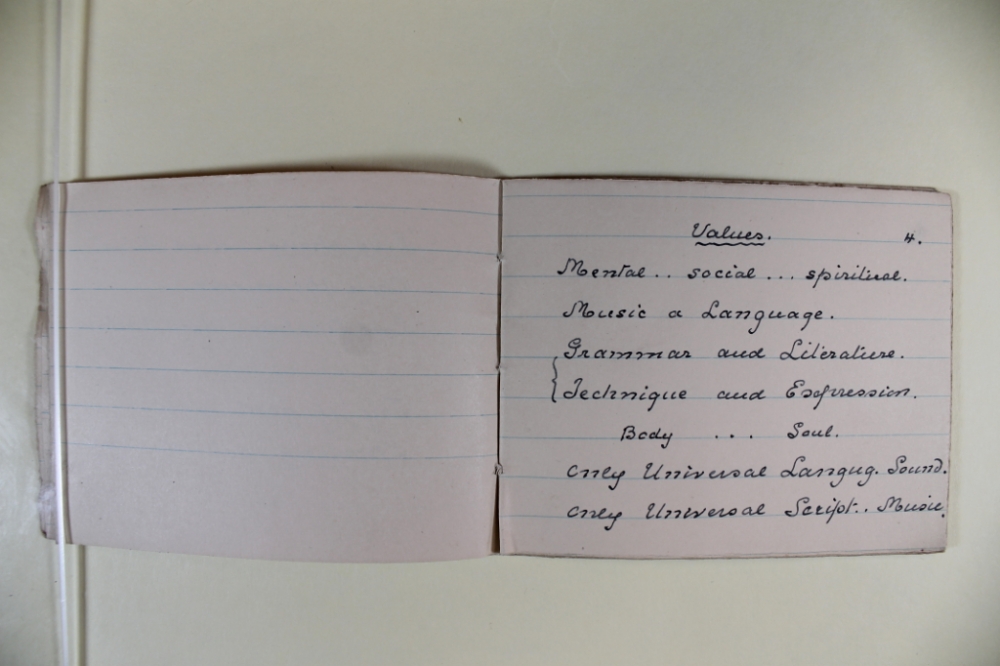 Values. 4.
Mental .. social ... spiritual.
Music a Language.
Grammar and Literature.
Technique and Expression.
Body ... Soul.
Only Universal Langug. Sound.
Only Universal Script.. Music.